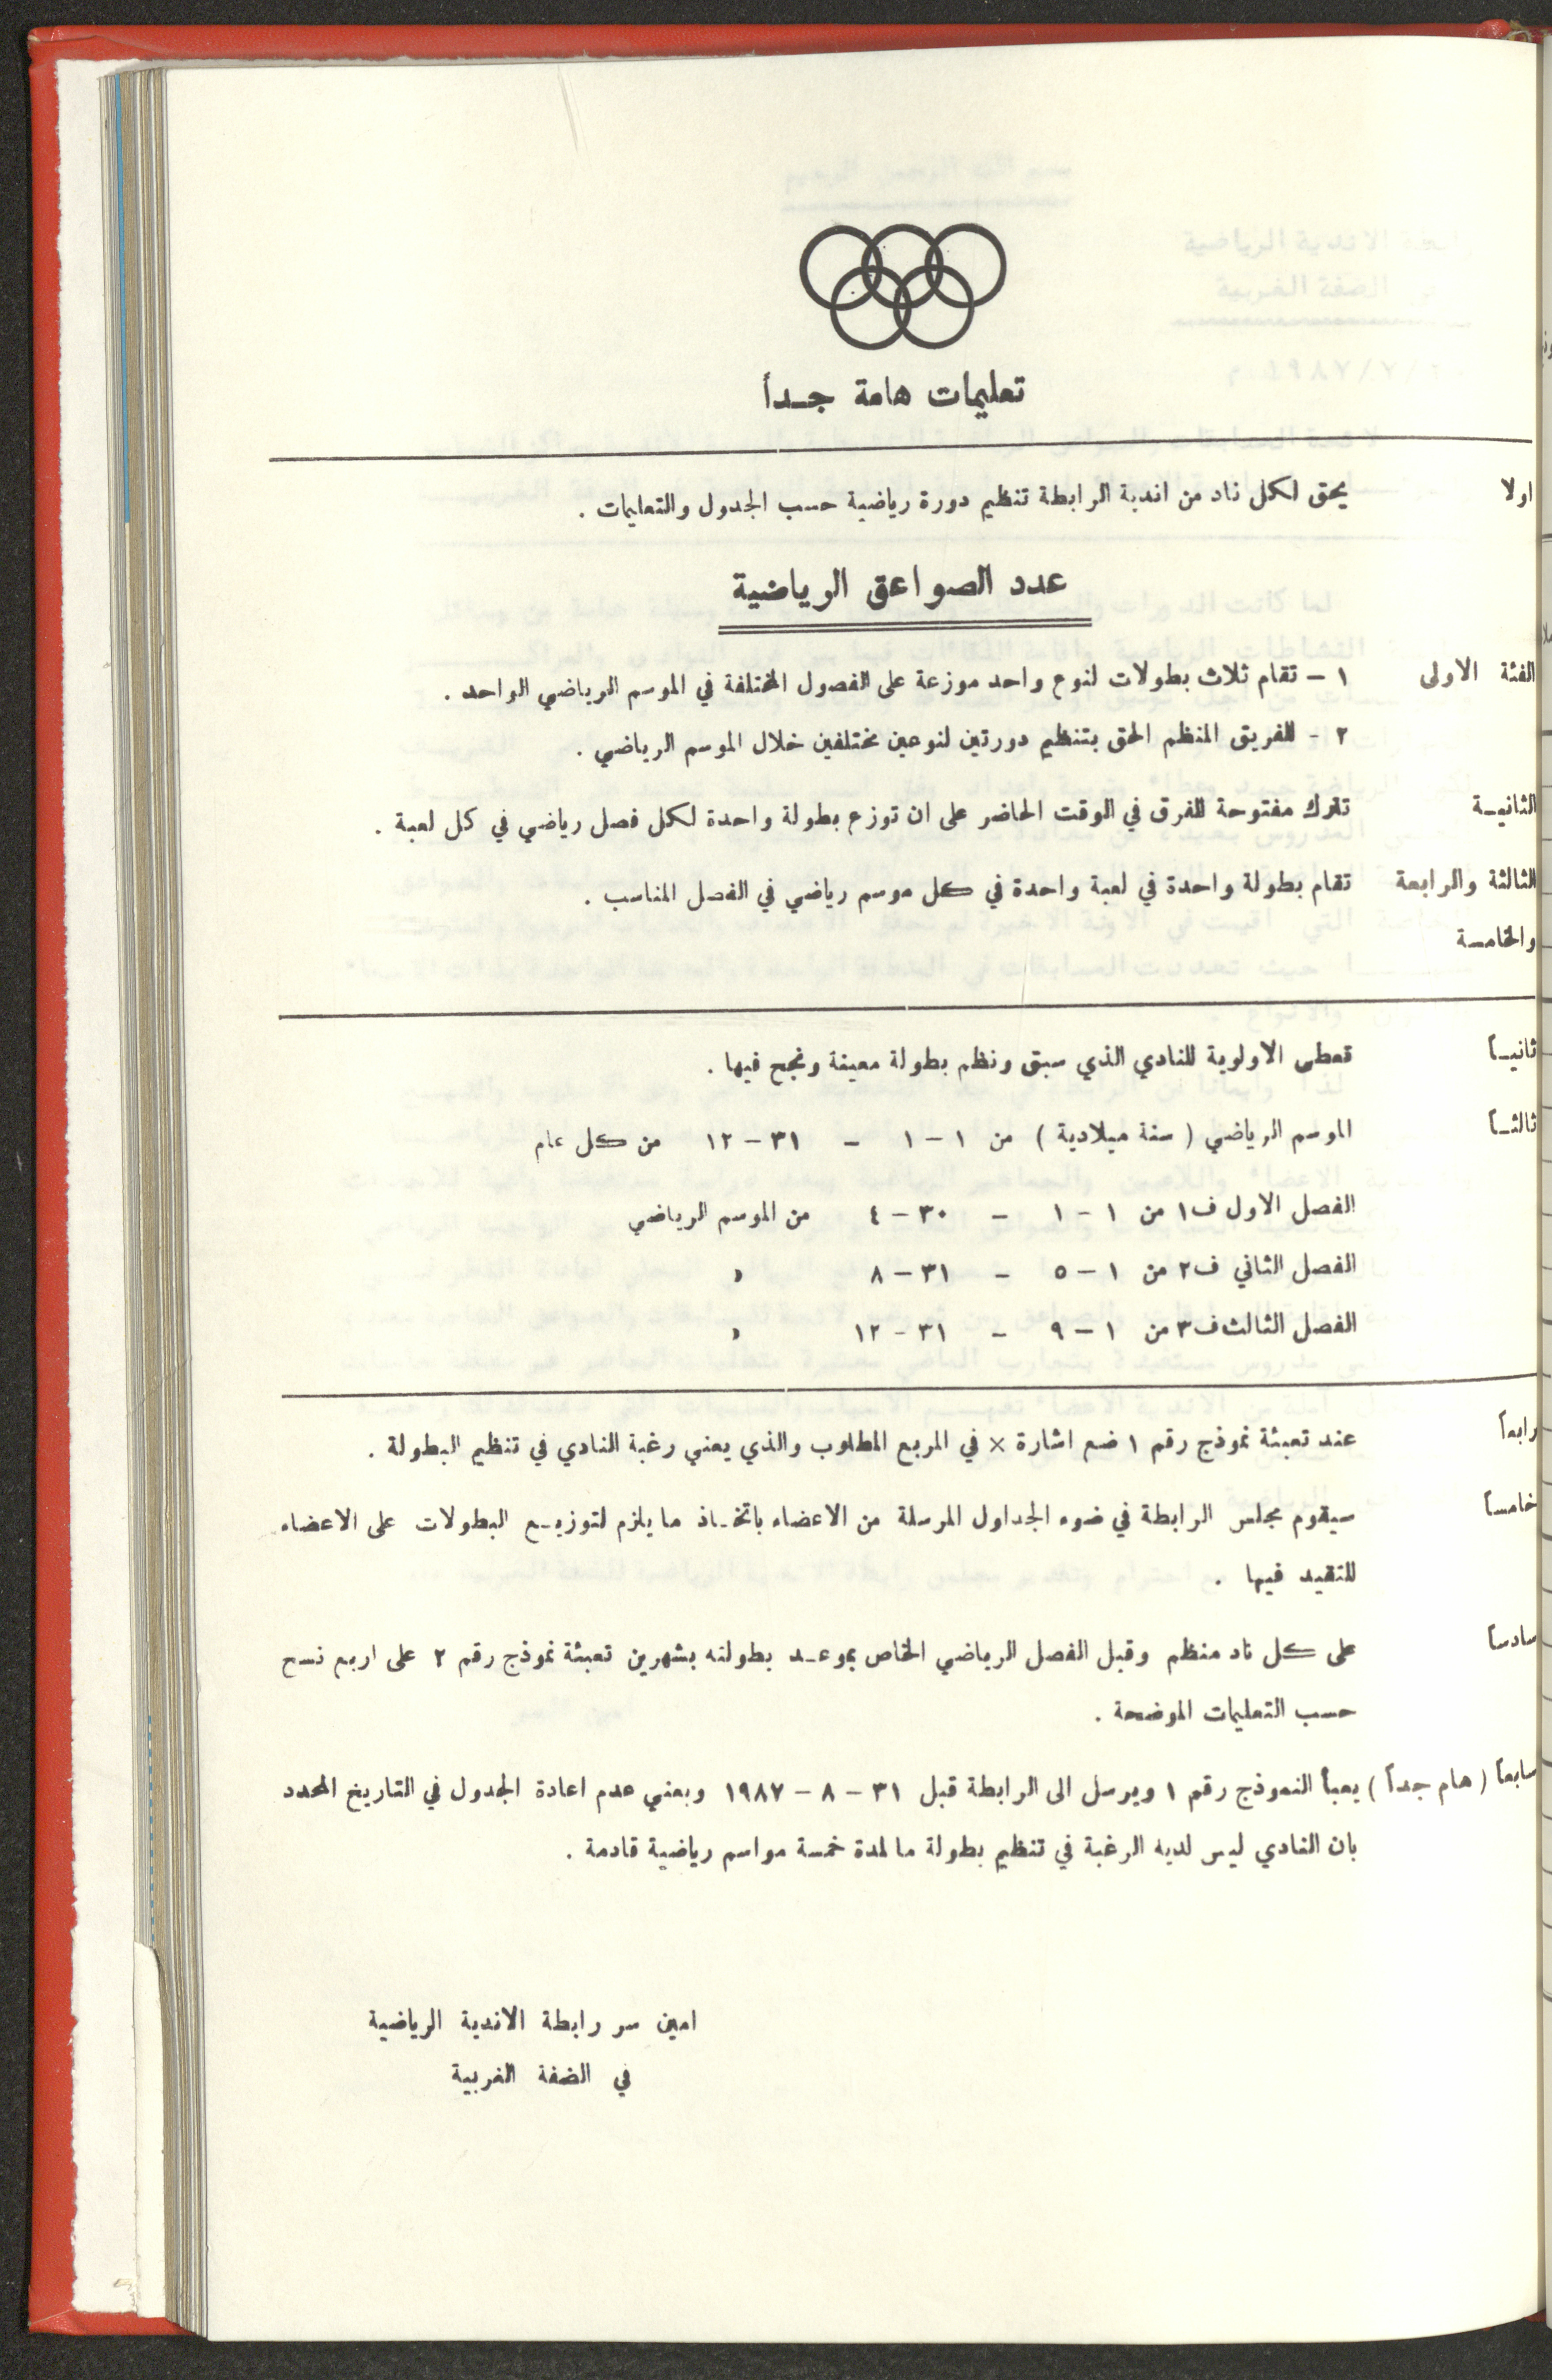 تعليمات هامة جـداً
اولا يحق لكل ناد من اندية الرابطة تنظيم دورة رياضية حسب الجدول والتعليمات .
عدد الصواعق الرياضية
الفئة الاولى ١ - تقام ثلاث بطولات لنوع واحد موزعة على الفصول المختلفة في الموسم الرياضي الواحد .
٢ - للفريق المنظم الحق بتنظيم دورتين لنوعين مختلفين خلال الموسم الرياضي .
الثانيـة تترك مفتوحة للفرق في الوقت الحاضر على ان توزع بطولة واحدة لكل فصل رياضي في كل لعبة .
الثالثة والرابعة تقام بطولة واحدة في لعبة واحدة في كل موسم رياضي في الفصل المناسب .
والخامسة
ثانيـاً تعطى الاولوية للنادي الذي سبق ونظم بطولة معينة ونجح فيها .
ثالثـاً الموسم الرياضي ( سنة ميلادية ) من ١ - ١ - ٣١ - ١٢ من كل عام
الفصل الاول ف١ من ١ - ١ - ٣٠ - ٤ من الموسم الرياضي
الفصل الثاني ف٢ من ١ - ٥ - ٣١ - ٨ »
الفصل الثالث ف٣ من ١ - ٩ - ٣١ - ١٢ »
رابعاً عند تعبئة نموذج رقم ١ ضع اشارة × في المربع المطلوب والذي يعني رغبة النادي في تنظيم البطولة .
خامساً سيقوم مجلس الرابطة في ضوء الجداول المرسلة من الاعضاء باتخـاذ ما يلزم لتوزيـع البطولات على الاعضاء
للتقيد فيها .
سادساً على كل ناد منظم وقبل الفصل الرياضي الخاص بموعـد بطولته بشهرين تعبئة نموذج رقم ٢ على اربع نسخ
حسب التعليمات الموضحة .
سابعاً ( هام جداً ) يعبأ النموذج رقم ١ ويرسل الى الرابطة قبل ٣١ - ٨ - ١٩٨٧ ويعني عدم اعادة الجدول في التاريخ المحدد
بان النادي ليس لديه الرغبة في تنظيم بطولة ما لمدة خمسة مواسم رياضية قادمة .
امين سر رابطة الاندية الرياضية
في الضفة الغربية